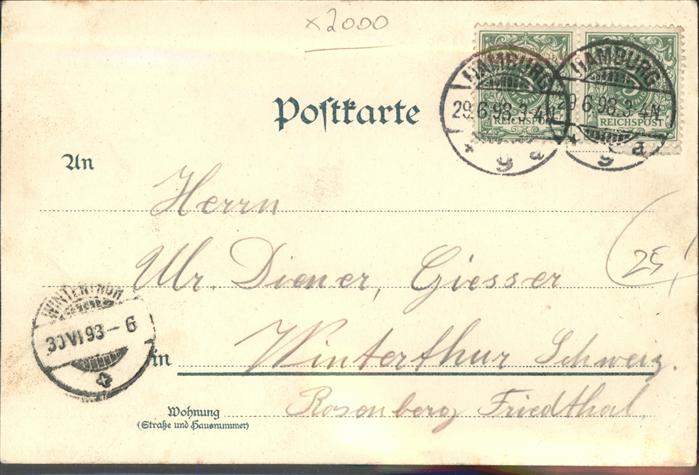 x2000
HAMBURG
29.6.98.3-4N.
* 9 a
REICHSPOST
HAMBURG
29.6.98.3-4N.
* 9 a
5
REICHSPOST
Postkarte
An
Herrn
Ulr. Diener, Giesser
25
WINTERTHUR
30 VI 98 - 6
in Winterthur Schweiz.
Rosenberg Friedthal
Wohnung
(Straße und Hausnummer)